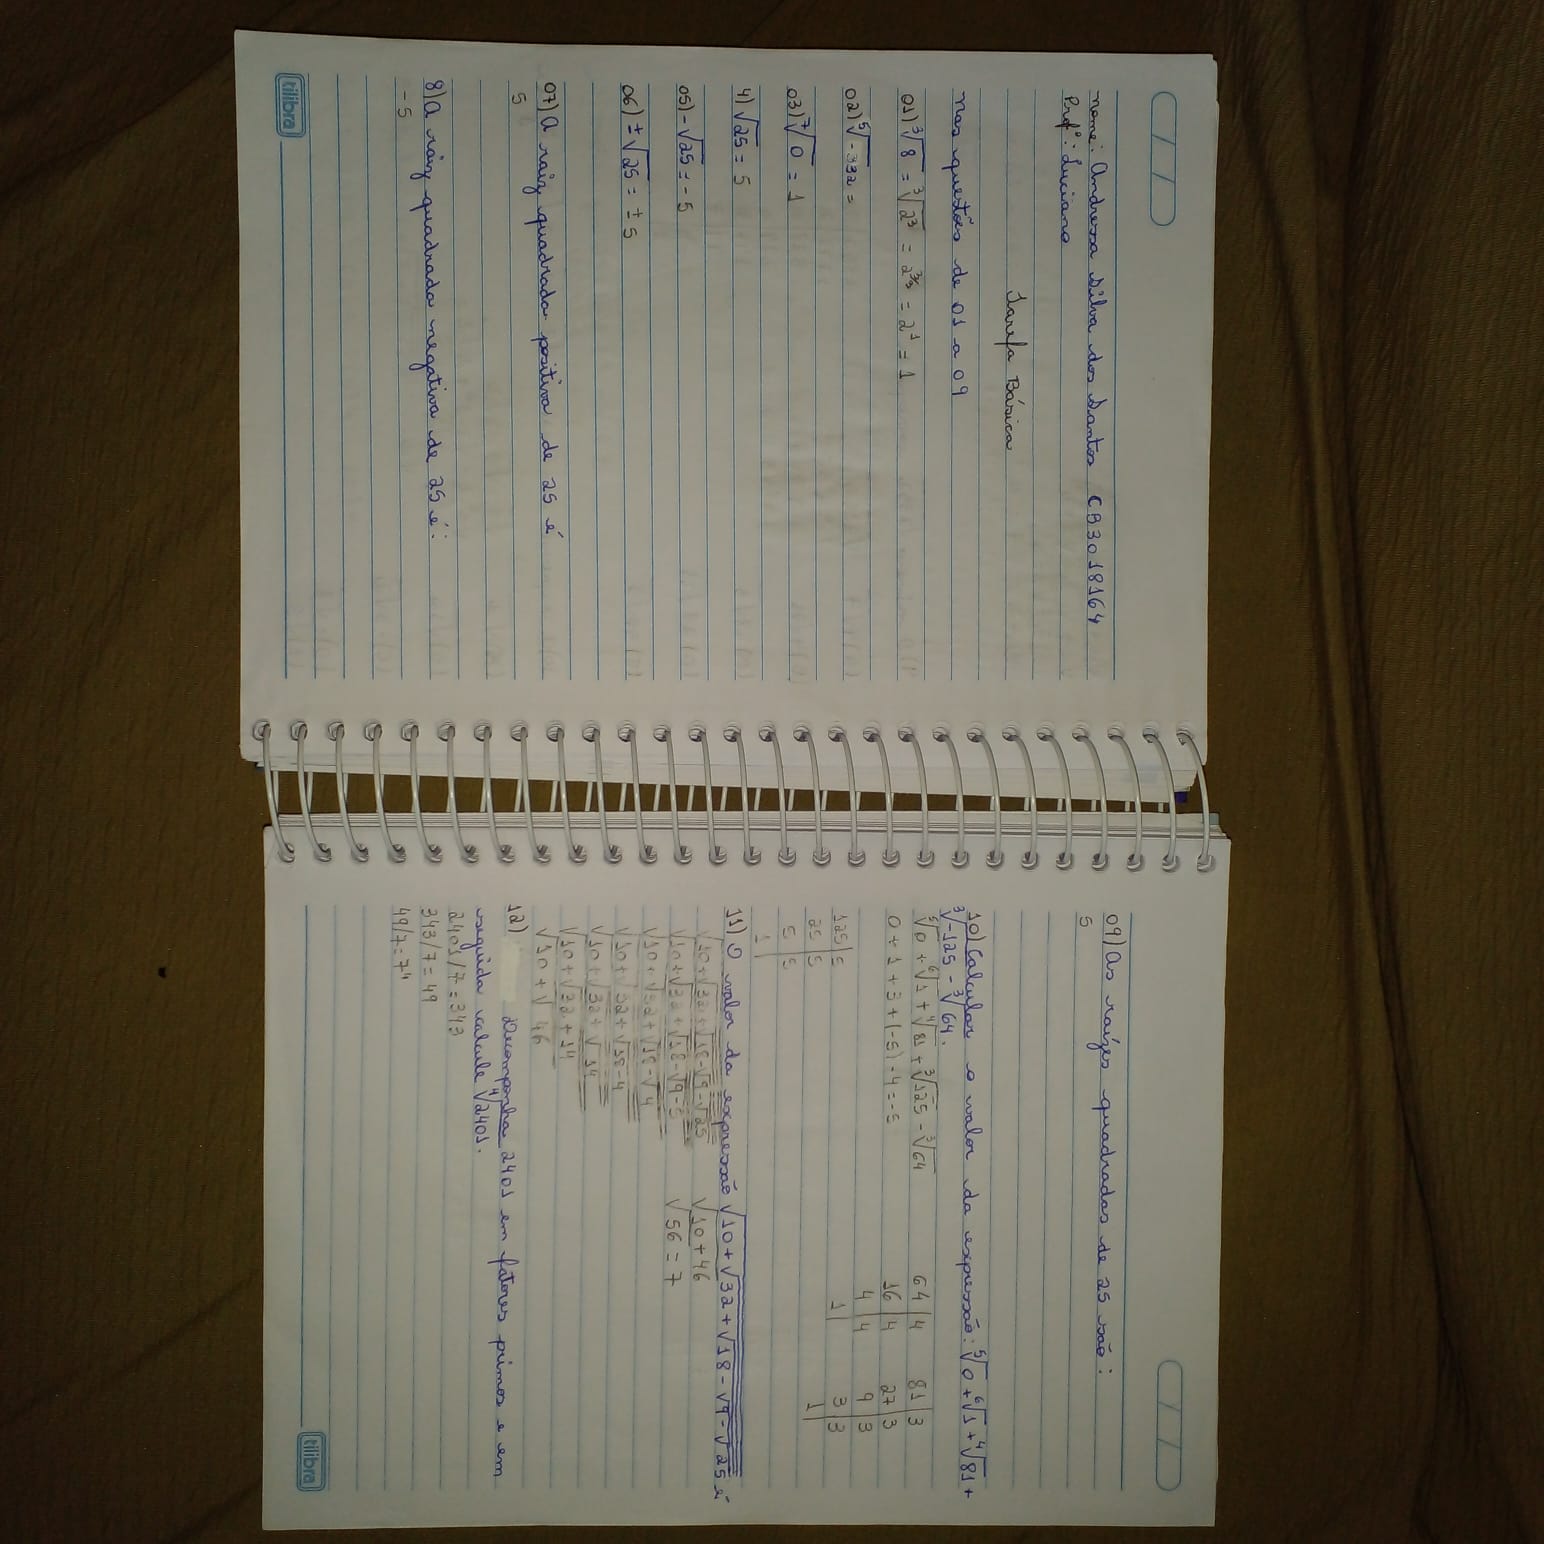 nome: Andressa Silva dos Santos CB3018164
Profº: Luciano
Tarefa Básica
nas questões de 01 a 09
01) ∛8 = ∛2³ = 2^3/3 = 2¹ = 1
02) ⁵√-332 =
03) ⁷√0 = 1
4) √25 = 5
05) -√25 = -5
06) ±√25 = ±5
07) A raiz quadrada positiva de 25 é
5
8) A raiz quadrada negativa de 25 é:
-5
tilibra
09) As raízes quadradas de 25 são:
5
10) Calcular o valor da expressão: ⁵√0 + ⁶√1 + ⁴√81 +
∛-125 - ∛64.
⁵√0 + ⁶√1 + ⁴√81 + ∛125 - ∛64
0 + 1 + 3 + (-5) - 4 = -5
64|4 81|3
16|4 27|3
4|4 9|3
1| 3|3
1|
125|5
25|5
5|5
1|
11) O valor da expressão √10+√32+√18-√9-√25 é
√10+√32+√18-√9-√25
√10+√32+√18-√9-5
√10+√32+√18-√4
√10+√32+√18-4
√10+√32+√14
√10+√32+14
√10+√46
√10+46
√56 = 7
12) Decomponha 2401 em fatores primos e em
seguida calcule ⁴√2401.
2401/7 = 343
343/7 = 49
49/7 = 7⁴
tilibra